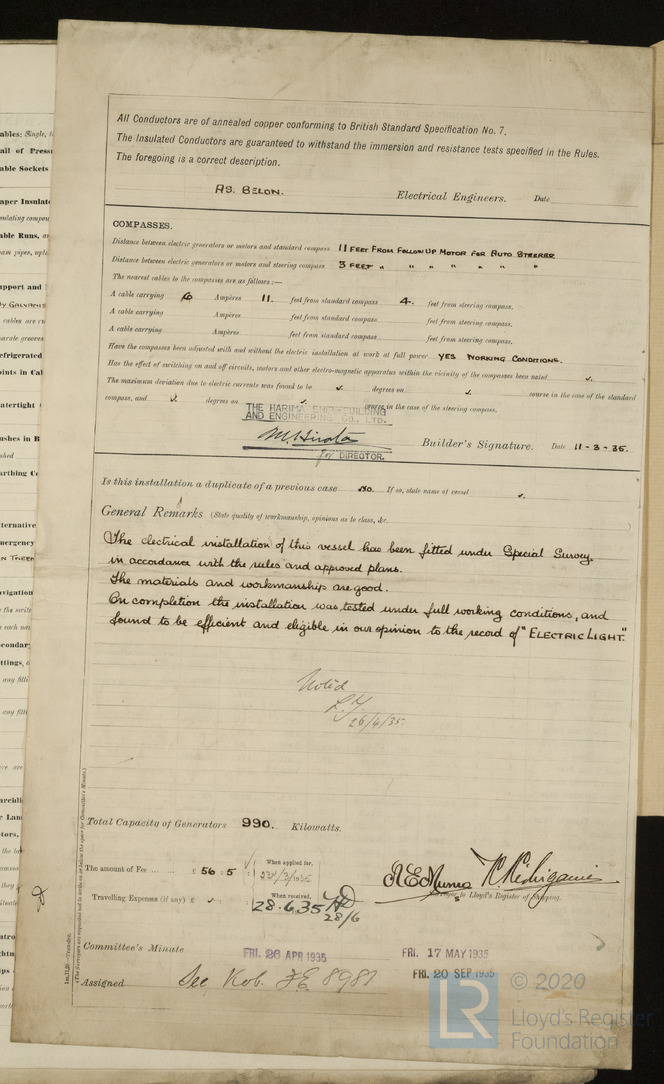 All Conductors are of annealed copper conforming to British Standard Specification No. 7.
The Insulated Conductors are guaranteed to withstand the immersion and resistance tests specified in the Rules.
The foregoing is a correct description.
AS BELOW. Electrical Engineers. Date
COMPASSES.
Distance between electric generators or motors and standard compass 11 FEET FROM FOLLOW UP MOTOR FOR AUTO STEERER
Distance between electric generators or motors and steering compass 3 FEET " " " " " " "
The nearest cables to the compasses are as follows:—
A cable carrying 6 Ampères 11. feet from standard compass 4. feet from steering compass.
A cable carrying Ampères feet from standard compass feet from steering compass.
A cable carrying Ampères feet from standard compass feet from steering compass.
Have the compasses been adjusted with and without the electric installation at work at full power YES WORKING CONDITIONS.
Has the effect of switching on and off circuits, motors and other electro-magnetic apparatus within the vicinity of the compasses been noted ✓.
The maximum deviation due to electric currents was found to be ✓. degrees on ✓. course in the case of the standard
compass, and ✓. degrees on ✓. course in the case of the steering compass.
THE HARIMA SHIPBUILDING
AND ENGINEERING CO., LTD.
M. Hirota Builder's Signature. Date 11-3-35.
for DIRECTOR.
Is this installation a duplicate of a previous case No. If so, state name of vessel ✓.
General Remarks (State quality of workmanship, opinions as to class, &c.
The electrical installation of this vessel has been fitted under Special Survey,
in accordance with the rules and approved plans.
The materials and workmanship are good.
On completion the installation was tested under full working conditions, and
found to be efficient and eligible in our opinion to the record of "ELECTRIC LIGHT."
Noted
26/4/35.
Total Capacity of Generators 990. Kilowatts.
The amount of Fee ... £ 56 : 5 When applied for,
23/3/1935
Travelling Expenses (if any) £ ✓ : When received,
28.6.35 28/6
Surveyors to Lloyd's Register of Shipping.
Committee's Minute FRI. 26 APR 1935 FRI. 17 MAY 1935
FRI. 20 SEP 1935
Assigned See Kob. F.E. 8981
1m,11,29.—Transfer.
(The Surveyors are requested not to write on or below the space for Committee's Minute.)
© 2020
LR
Lloyd's Register
Foundation